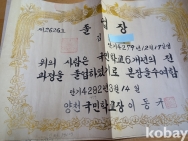 제2626호
졸업장
단기4279년12월19일생
위의 사람은 국민학교 6개년의 전
과정을 졸업하였기로 본장을 수여함
단기4282년3월14일
양천국민학교장 이동규
kobay